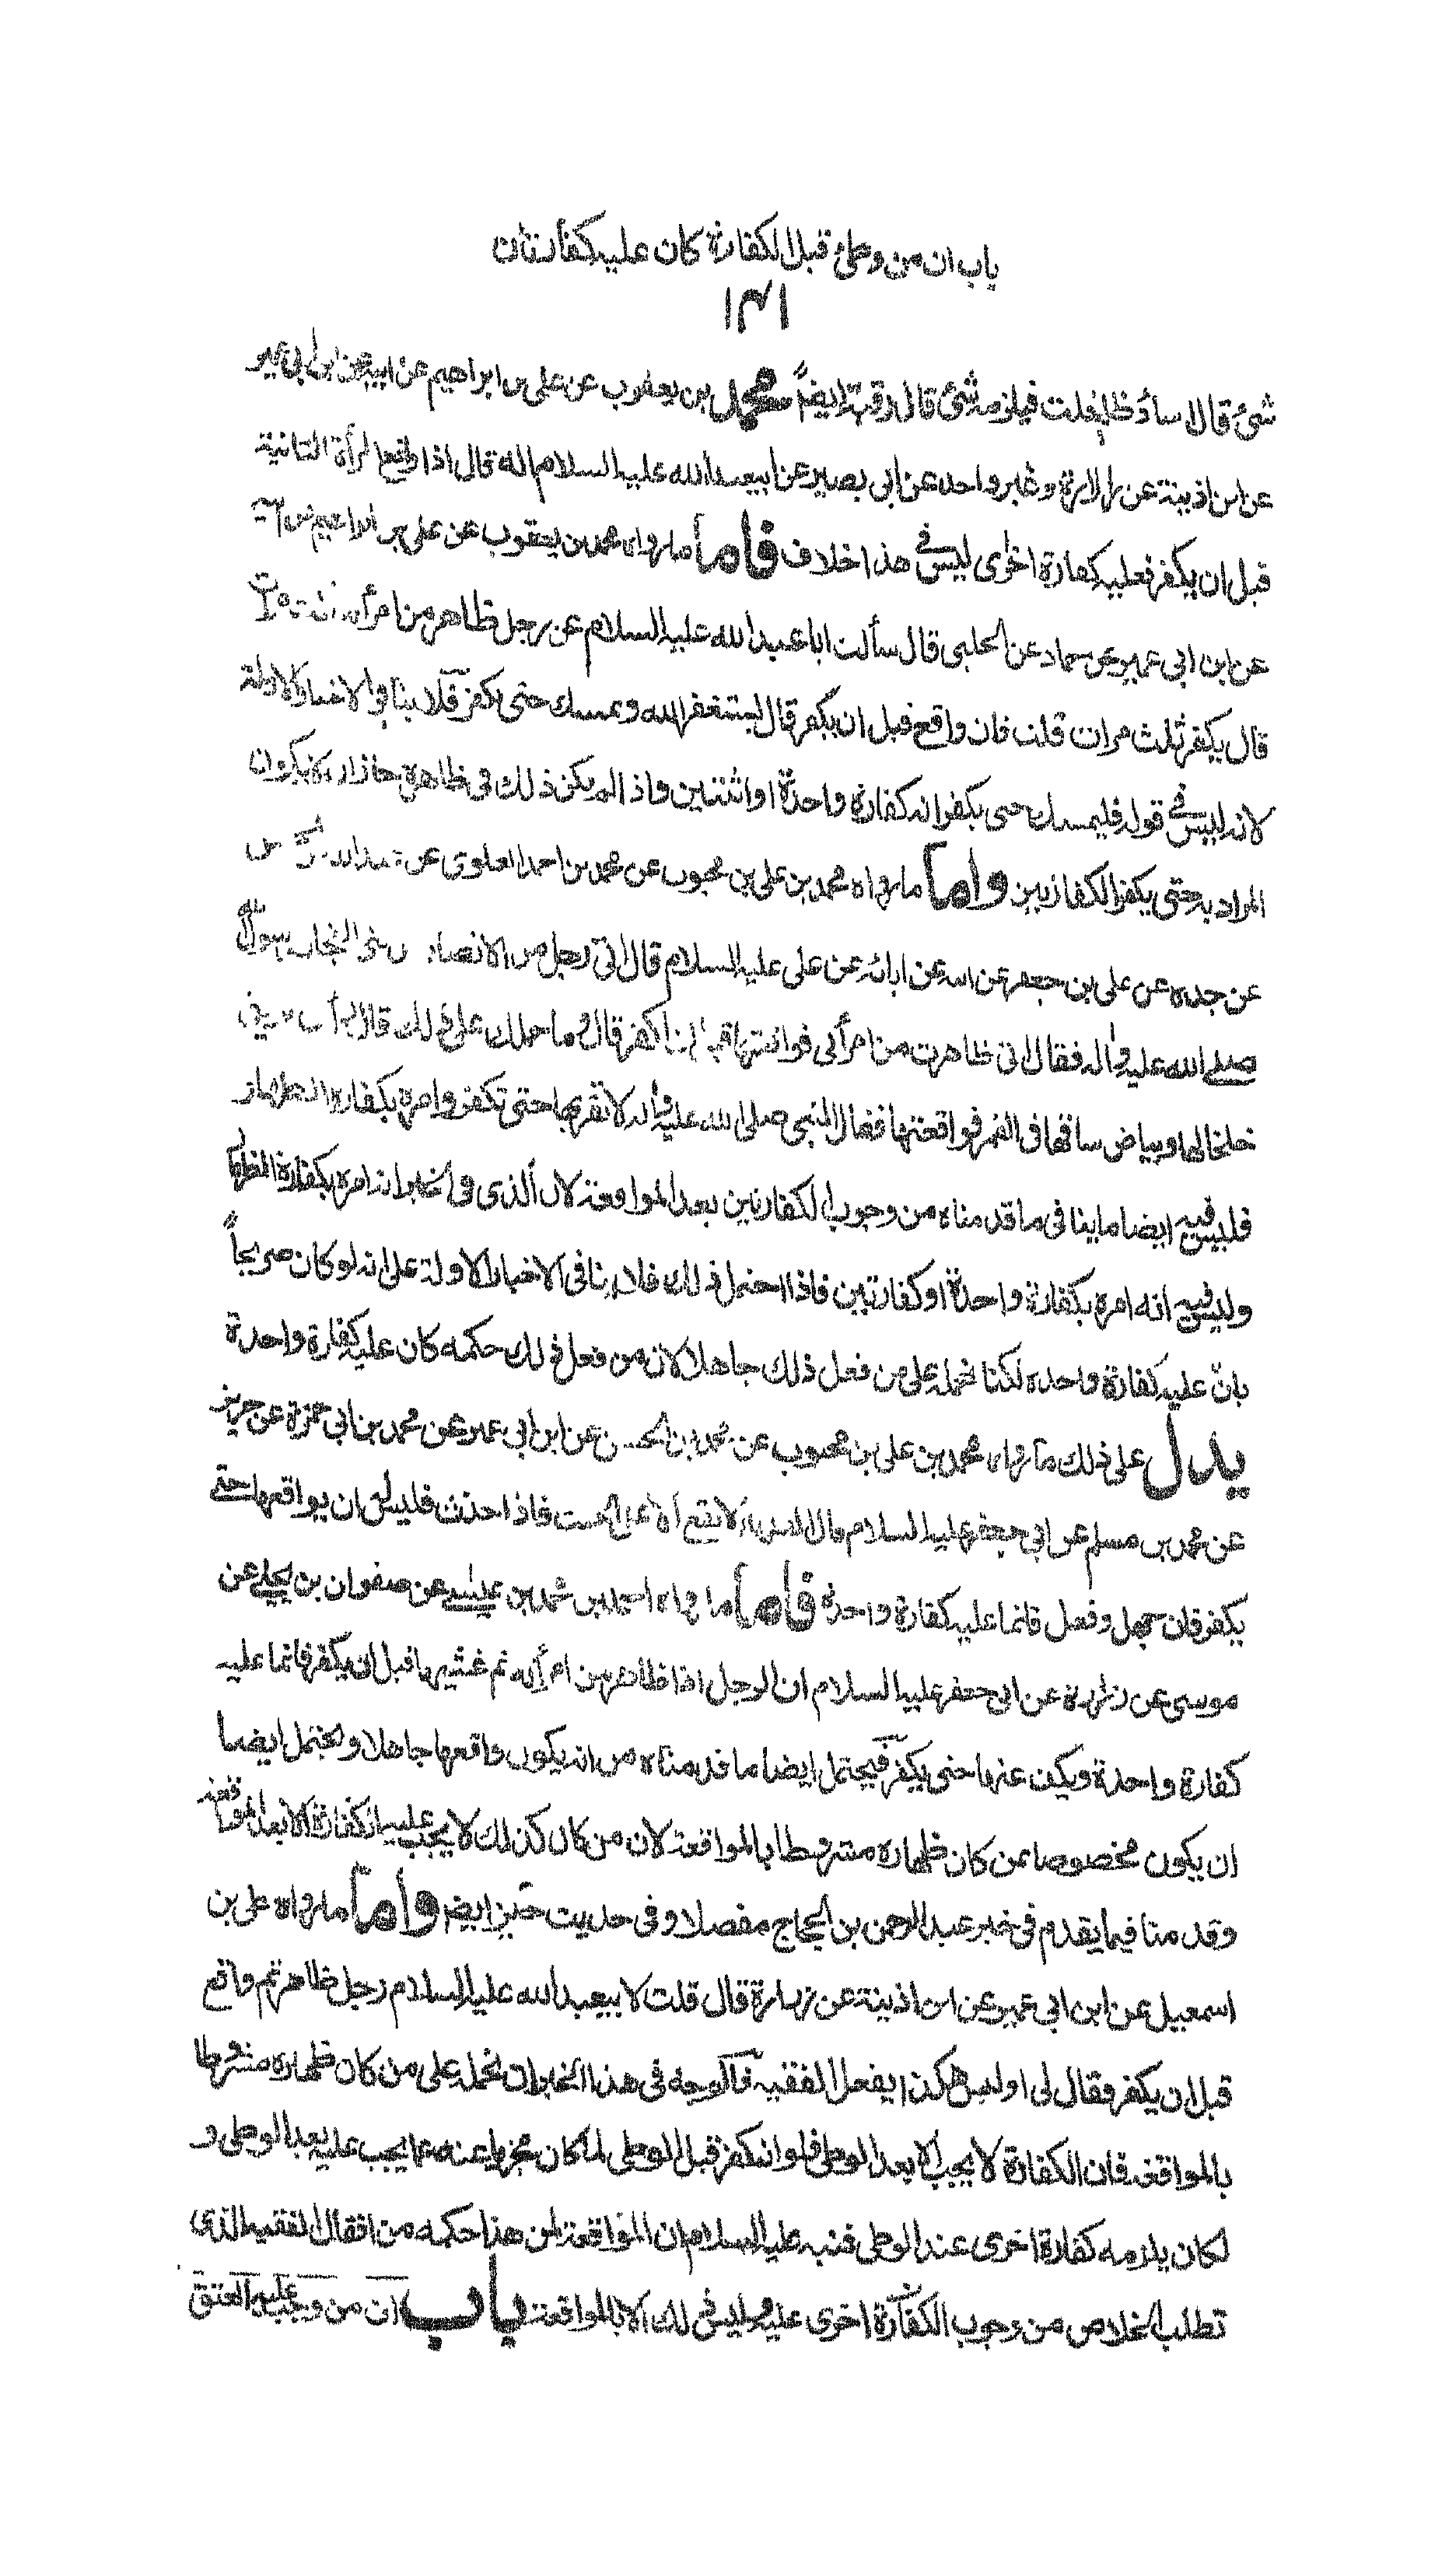 باب ان من وطئ قبل الكفارة كان عليه كفارتان
١٣١
شئ قال اساء وظلم قلت فيلزمه شئ قال رقبة ايضاً محمد بن يعقوب عن علي بن ابراهيم عن ابيه عن ابن ابي عمير
عن ابن اذينة عن زرارة وغير واحد عن ابي بصير عن ابيعبدالله عليه السلام انه قال اذا واقع المرأة الثانية
قبل ان يكفر فعليه كفارة اخرى ليس في هذا خلاف فاما ما رواه محمد بن يعقوب عن علي بن ابراهيم عن ابيه
عن ابن ابي عمير عن حماد عن الحلبي قال سألت ابا عبدالله عليه السلام عن رجل ظاهر من امرأته
قال يكفر ثلث مرات قلت فان واقع قبل ان يكفر قال يستغفر الله ويمسك حتى يكفر فلا ينافي الاخبار الاولة
لانه ليس في قوله فليمسك حتى يكفر انه كفارة واحدة او اثنتين واذا لم يكن ذلك في ظاهره جاز ان يكون
المراد به حتى يكفر الكفارتين واما ما رواه محمد بن علي بن محبوب عن محمد بن احمد العلوي عن
عن جده عن علي بن جعفر عن ابيه عن ابائه عن علي عليه السلام قال اتى رجل من الانصار من بني النجار رسول الله
صلى الله عليه واله فقال اني ظاهرت من امرأتي فواقعتها قبل ان اكفر قال وما حملك على ذلك قال رأيت بريق
خلخالها وبياض ساقها في القمر فواقعتها فقال النبي صلى الله عليه واله لا تقربها حتى تكفر وامره بكفارة الظهار
فليس فيه ايضا ما ينافي ما قدمناه من وجوب الكفارتين بعد المواقعة لان الذي في الخبر انه امره بكفارة الظهار
وليس فيه انه امره بكفارة واحدة او كفارتين فاذا احتمل ذلك فلا ينافي الاخبار الاولة على انه لو كان صريحاً
بان عليه كفارة واحده لكنا نحمله على من فعل ذلك جاهلا لانه من فعل ذلك حكمه كان عليه كفارة واحدة
يدل على ذلك ما رواه محمد بن علي بن محبوب عن محمد بن الحسين عن ابن ابي عمير عن محمد بن ابي حمزة عن حريز
عن محمد بن مسلم عن ابي جعفر عليه السلام قال الظهار لا يقع الا على الحنث فاذا حنث فليس له ان يواقعها حتى
يكفر فان جهل وفعل فانما عليه كفارة واحدة فاما ما رواه احمد بن محمد بن عيسى عن صفوان بن يحيى عن
موسى عن زرارة عن ابي جعفر عليه السلام ان الرجل اذا ظاهر من امرأته ثم غشيها قبل ان يكفر فانما عليه
كفارة واحدة ويكف عنها حتى يكفر فيحتمل ايضا ما قدمناه من انه يكون واقعها جاهلا ويحتمل ايضا
ان يكون مخصوصا بمن كان ظهاره مشروطا بالمواقعة لان من كان كذلك لا يجب عليه الكفارة الا بعد المواقعة
وقد منا فيما يقدم في خبر عبد الرحمن بن الحجاج مفصلا وفي حديث حريز ايضا واما ما رواه علي بن
اسمعيل عن ابن ابي عمير عن ابن اذينة عن زرارة قال قلت لابيعبدالله عليه السلام رجل ظاهر ثم واقع
قبل ان يكفر فقال لي اوليس هكذا يفعل الفقيه فالوجه في هذا الخبر ان نحمله على من كان ظهاره مشروطا
بالمواقعة فان الكفارة لا يجب الا بعد الوطى فلو انه كفر قبل الوطى لما كان مجزيا عنه عما يجب عليه بعد الوطى و
لكان يلزمه كفارة اخرى عند الوطى فنبه عليه السلام ان المواقعة لمن هذا حكمه من افعال الفقيه الذي
تطلب الخلاص من وجوب الكفارة اخرى عليه وليس ذلك الا بالمواقعة باب ان من وجب عليه العتق